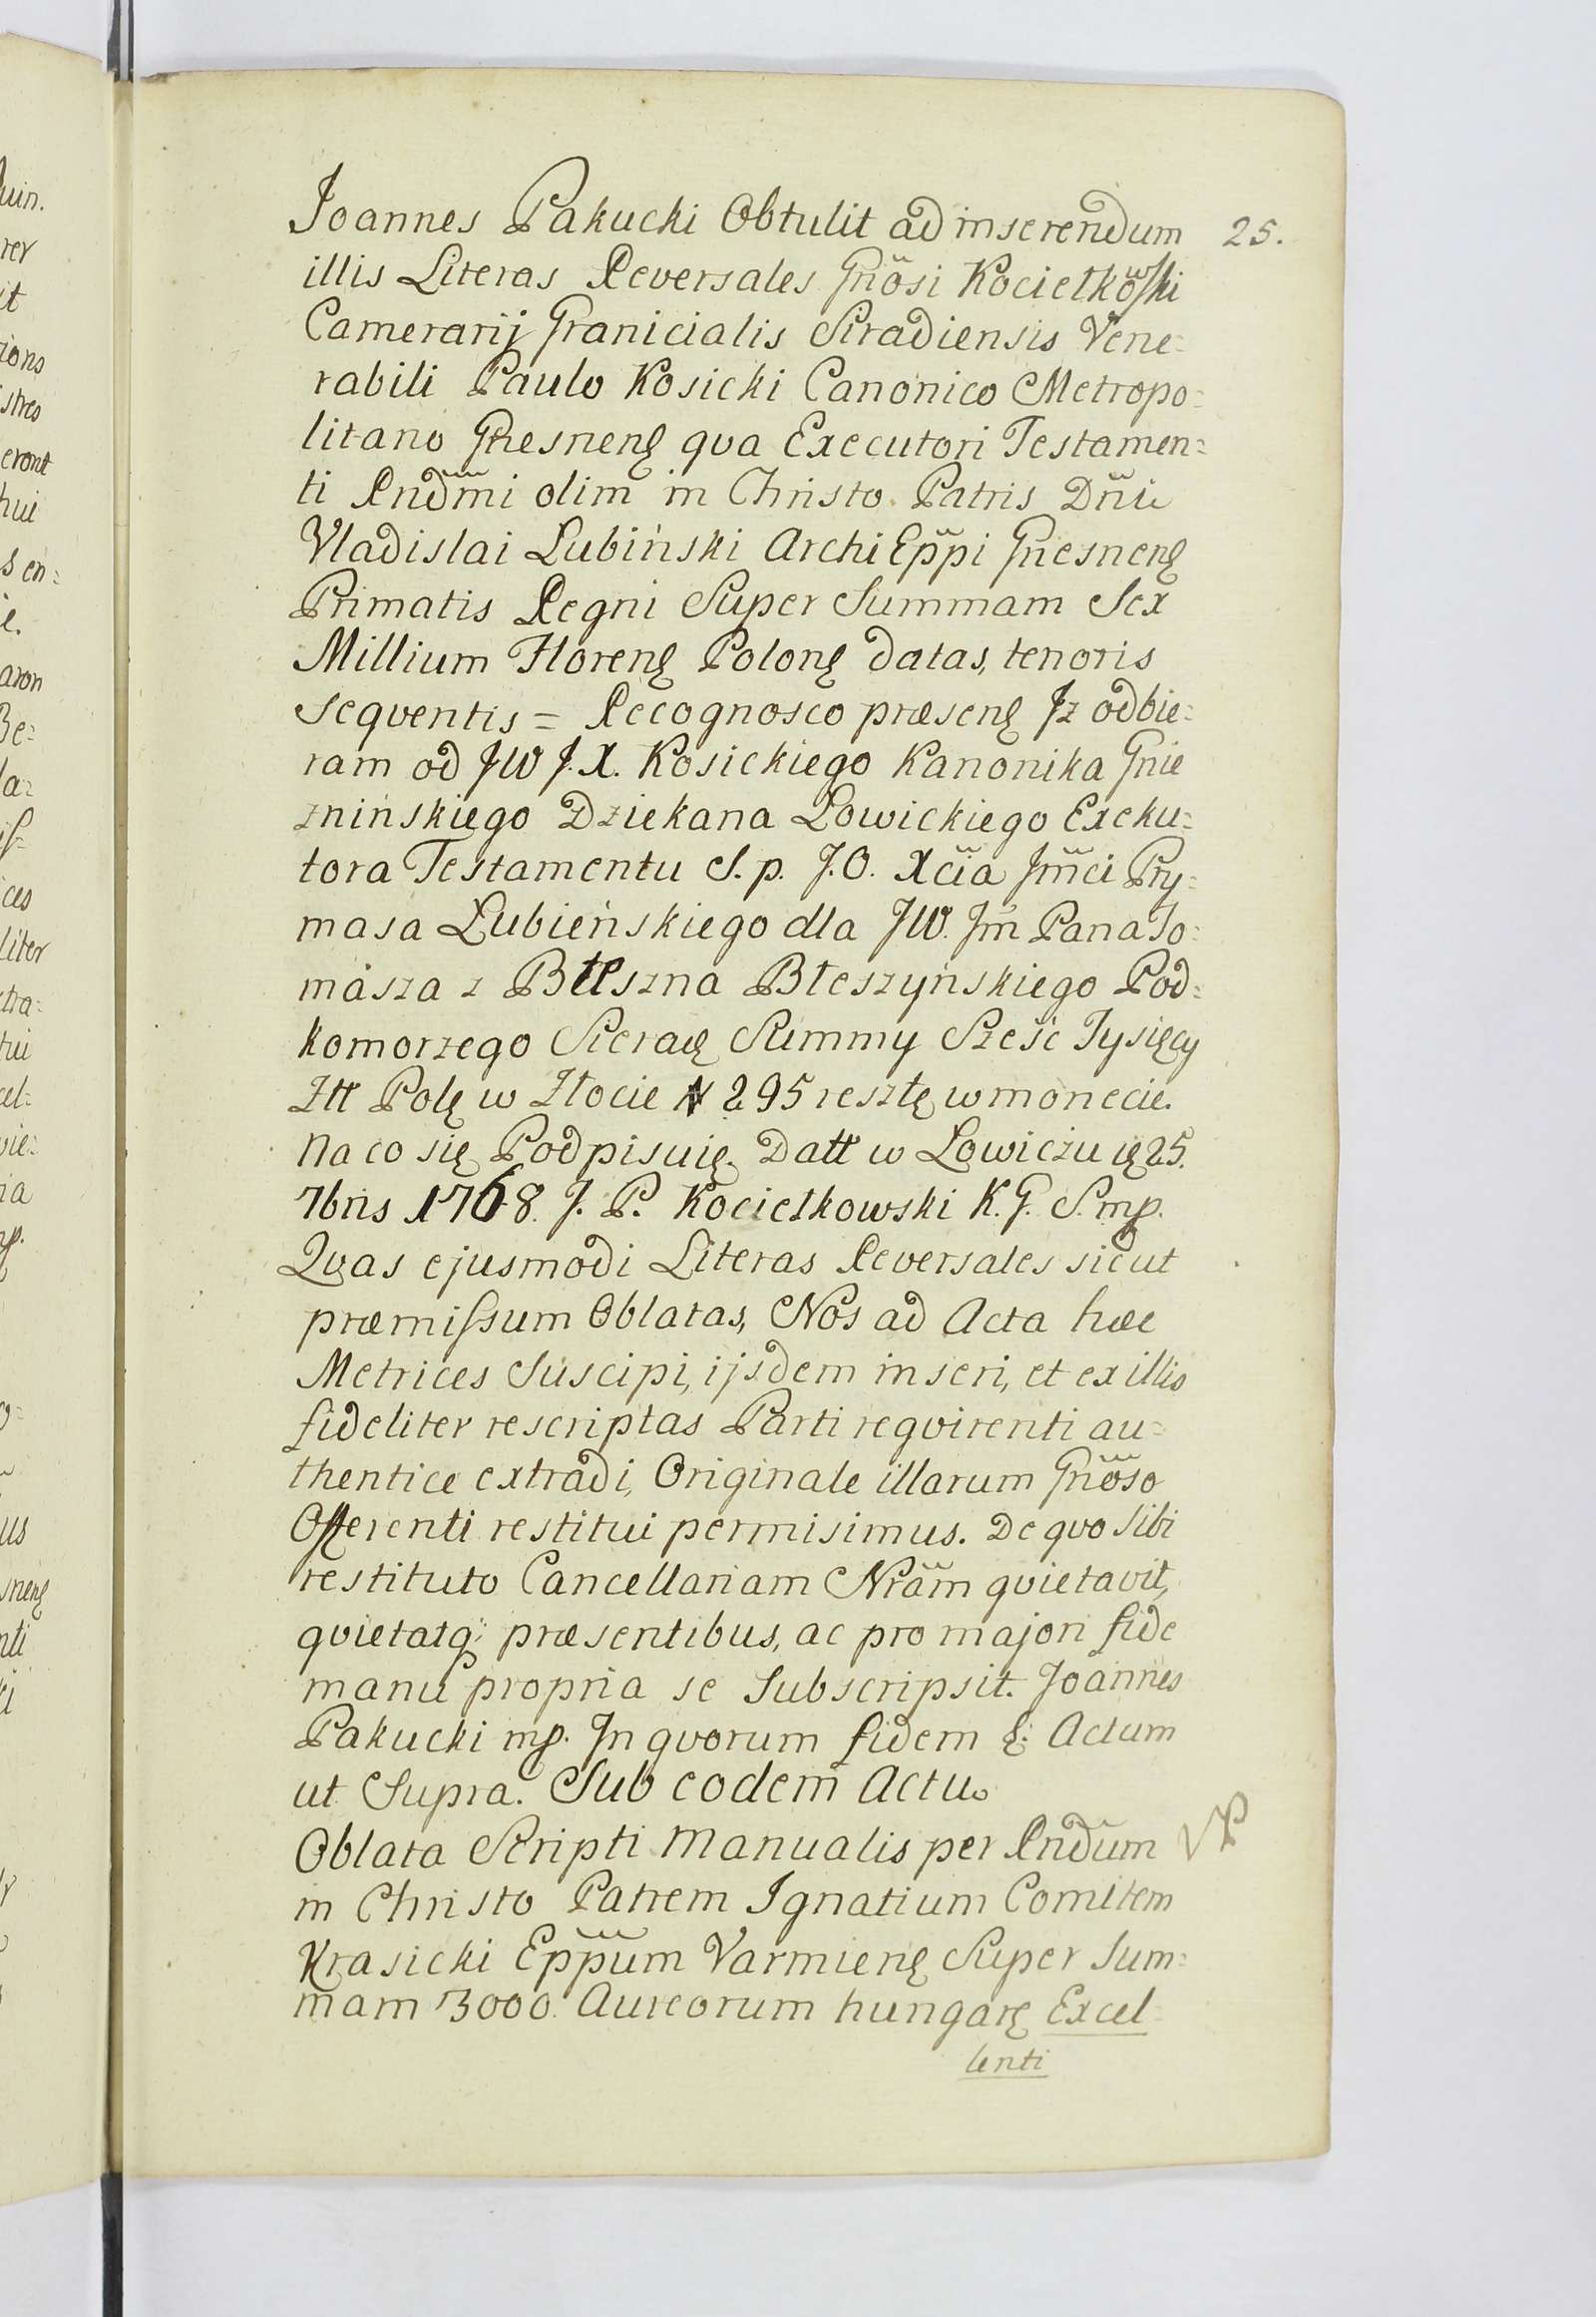 25.
Joannes Pakucki Obtulit ad inserendum
illis Literas Reversales Gnosi Kociełkowski
Camerarij Granicialis Siradiensis Vene=
rabili Paulo Kosicki Canonico Metropo=
litano Gnesnenę qva Executori Testamen=
ti Rndmi olim in Christo Patris Dñi
Vladislai Lubiński Archi Eppi Gnesnenę
Primatis Regni Super Summam Sex
Millium Florenę Polonę datas, tenoris
seqventis = Recognosco præsenę Jż odbie=
ram od JW J.X. Kosickiego Kanonika Gnie
znińskiego Dziekana Łowickiego Exeku=
tora Testamentu S. p. J.O. Xcia Jmci Pry=
masa Łubieńskiego dla JW. Jm Pana To=
masza z Błeszna Błeszyńskiego Pod=
komorzego Sieraę Summy Sześć Tysięcy
Złł Polę w Złocie N 295 resztę w monecie.
Na co się Podpisuię. Datt w Łowiczu ię 25.
7bris 1768. J. P. Kociełkowski K. G. S. mp.
Qvas ejusmodi Literas Reversales sicut
præmissum Oblatas, Nos ad Acta hæc
Metrices Suscipi, ijsdem inseri, et ex illis
fideliter rescriptas Parti reqvirenti au=
thentice extradi, Originale illarum Gnoso
Offerenti restitui permisimus. De qvo Sibi
restituto Cancellariam Nram qvietavit,
qvietatq; præsentibus, ac pro majori fide
manu propria se Subscripsit. Joannes
Pakucki mp. In qvorum fidem ę: Actum
ut Supra. Sub eodem Actu.
Oblata Scripti Manualis per Rndum
in Christo Patrem Ignatium Comitem
Krasicki Eppum Varmienę Super Sum=
mam 3000. Aureorum hungarę Excel
lenti